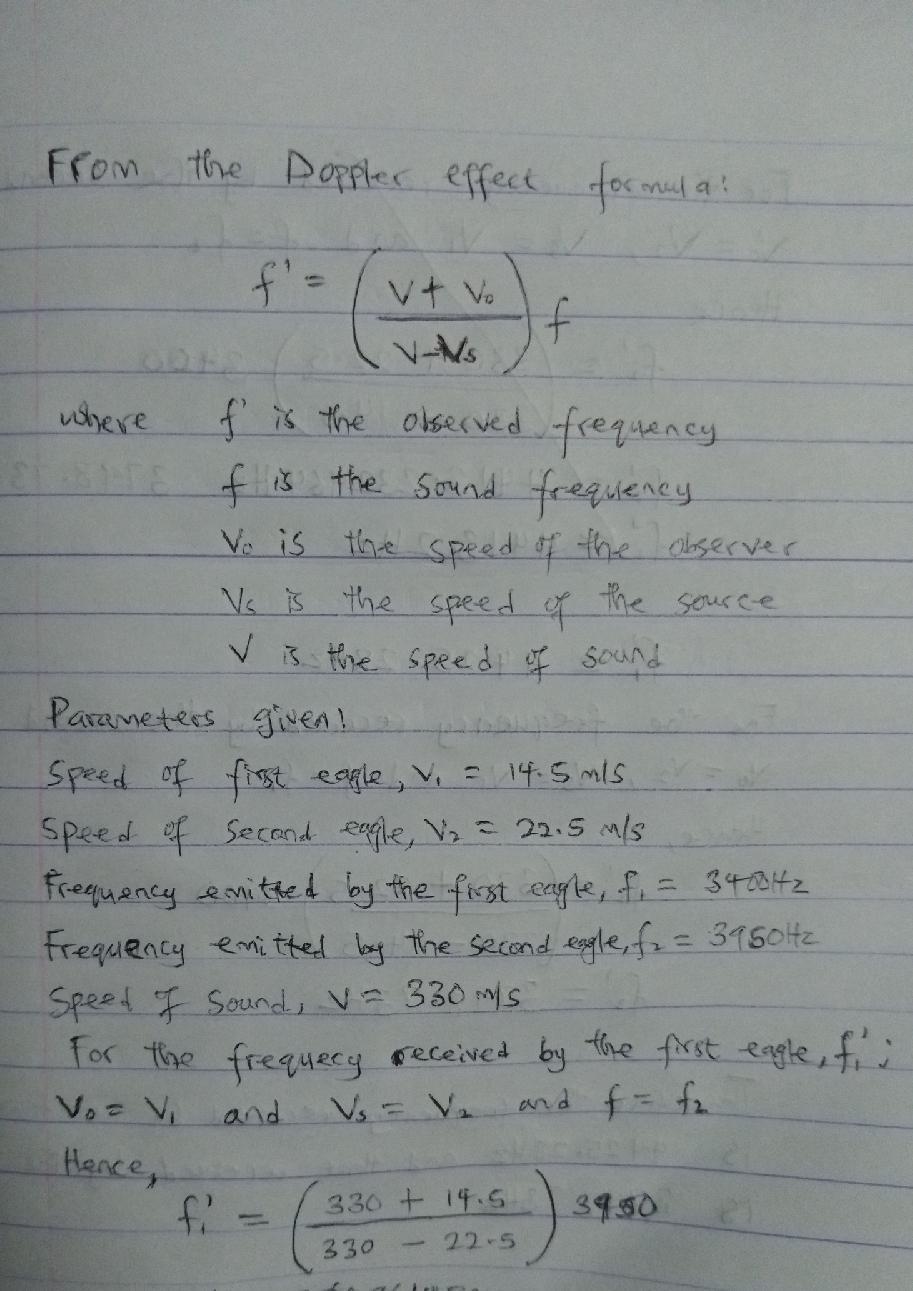 From the Doppler effect formula:
f' = ( V + Vo / V - Vs ) f
where f' is the observed frequency
f is the sound frequency
Vo is the speed of the observer
Vs is the speed of the source
V is the speed of sound
Parameters given!
Speed of first eagle, V₁ = 14.5 m/s
Speed of Second eagle, V₂ = 22.5 m/s
Frequency emitted by the first eagle, f₁ = 3400Hz
Frequency emitted by the second eagle, f₂ = 3950Hz
Speed of Sound, V = 330 m/s
For the frequecy received by the first eagle, f₁';
Vo = V₁ and Vs = V₂ and f = f₂
Hence,
f₁' = ( 330 + 14.5 / 330 - 22.5 ) 3950